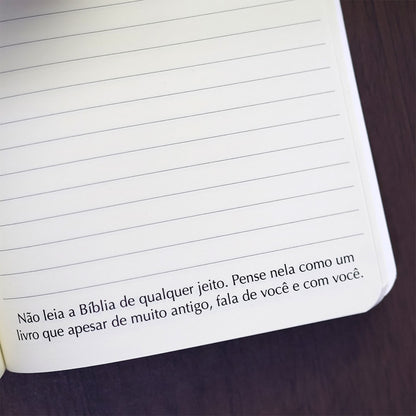 Não leia a Bíblia de qualquer jeito. Pense nela como um
livro que apesar de muito antigo, fala de você e com você.